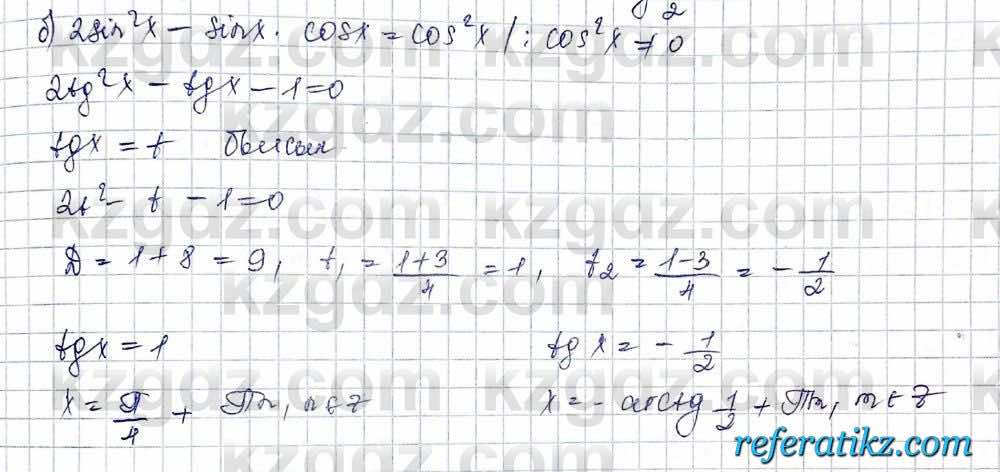 б) 2sin²x − sinx · cosx = cos²x / : cos²x ≠ 0
2tg²x − tgx − 1 = 0
tgx = t болсын
2t² − t − 1 = 0
D = 1 + 8 = 9, t₁ = (1+3)/4 = 1, t₂ = (1−3)/4 = −1/2
tgx = 1 tgx = −1/2
x = π/4 + πn, n∈Z x = −arctg 1/2 + πn, n∈Z
referatikz.com
kzgdz.com